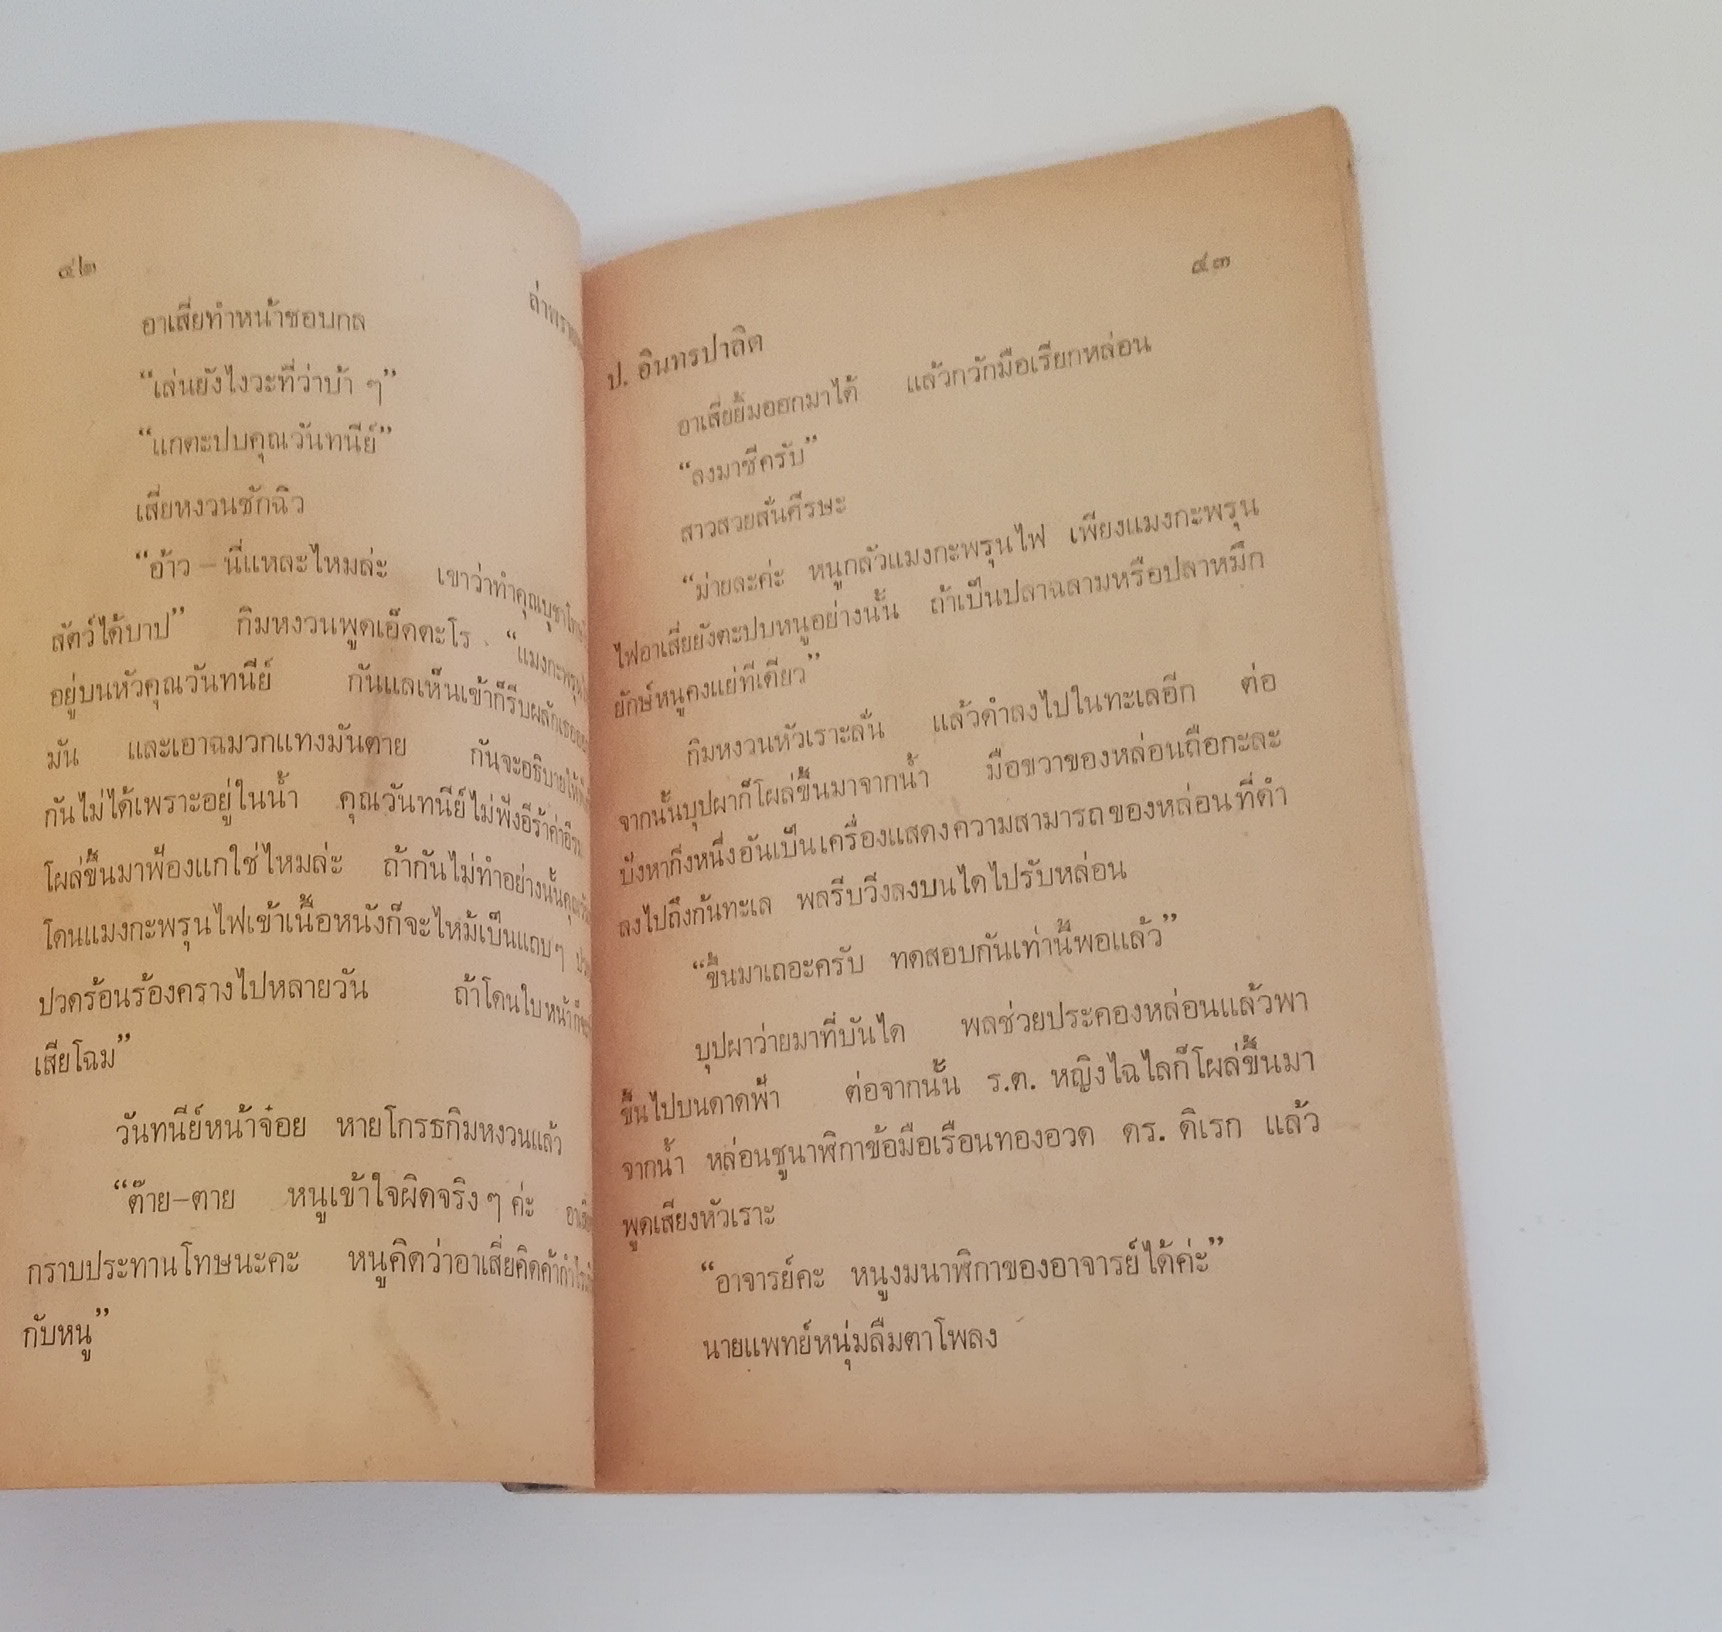 ๔๒
อาเสี่ยทำหน้าชอบกล
“เล่นยังไงวะที่ว่าบ้า ๆ”
“แกตะปบคุณวันทนีย์”
เสี่ยหงวนชักฉิว
“อ้าว – นี่แหละไหมล่ะ เขาว่าทำคุณบูชาโทษ
สัตว์ได้บาป” กิมหงวนพูดเอ็ดตะโร “แมงกะพรุน
อยู่บนหัวคุณวันทนีย์ กันแลเห็นเข้าก็รีบผลักเธอ
มัน และเอาฉมวกแทงมันตาย กันจะอธิบายให้
กันไม่ได้เพราะอยู่ในน้ำ คุณวันทนีย์ไม่ฟังอีร้าค่าอีรม
โผล่ขึ้นมาฟ้องแกใช่ไหมล่ะ ถ้ากันไม่ทำอย่างนั้นคุณ
โดนแมงกะพรุนไฟเข้าเนื้อหนังก็จะไหม้เป็นแถบๆ
ปวดร้อนร้องครางไปหลายวัน ถ้าโดนใบหน้า
เสียโฉม”
วันทนีย์หน้าจ๋อย หายโกรธกิมหงวนแล้ว
“ต๊าย–ตาย หนูเข้าใจผิดจริงๆ ค่ะ
กราบประทานโทษนะคะ หนูคิดว่าอาเสี่ยคิดค้ากำไร
กับหนู”
๔๓
ป. อินทรปาลิต
อาเสี่ยยิ้มออกมาได้ แล้วกวักมือเรียกหล่อน
“ลงมาซีครับ”
สาวสวยสั่นศีรษะ
“ม่ายละค่ะ หนูกลัวแมงกะพรุนไฟ เพียงแมงกะพรุน
ไฟอาเสี่ยยังตะปบหนูอย่างนั้น ถ้าเป็นปลาฉลามหรือปลาหมึก
ยักษ์หนูคงแย่ทีเดียว”
กิมหงวนหัวเราะลั่น แล้วดำลงไปในทะเลอีก ต่อ
จากนั้นบุปผาก็โผล่ขึ้นมาจากน้ำ มือขวาของหล่อนถือกะละ
บังหากิ่งหนึ่งอันเป็นเครื่องแสดงความสามารถของหล่อนที่ดำ
ลงไปถึงก้นทะเล พลรีบวิ่งลงบนไดไปรับหล่อน
“ขึ้นมาเถอะครับ ทดสอบกันเท่านี้พอแล้ว”
บุปผาว่ายมาที่บันได พลช่วยประคองหล่อนแล้วพา
ขึ้นไปบนดาดฟ้า ต่อจากนั้น ร.ต. หญิงไฉไลก็โผล่ขึ้นมา
จากน้ำ หล่อนชูนาฬิกาข้อมือเรือนทองอวด ดร. ดิเรก แล้ว
พูดเสียงหัวเราะ
“อาจารย์คะ หนูงมนาฬิกาของอาจารย์ได้ค่ะ”
นายแพทย์หนุ่มลืมตาโพลง